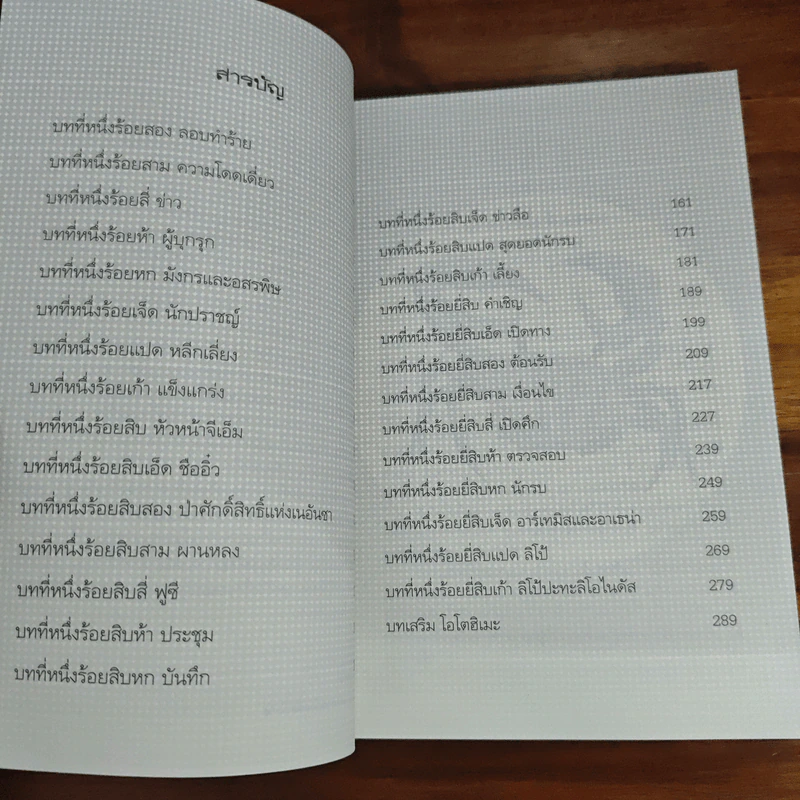 สารบัญ
บทที่หนึ่งร้อยสอง ลอบทำร้าย
บทที่หนึ่งร้อยสาม ความโดดเดี่ยว
บทที่หนึ่งร้อยสี่ ข่าว
บทที่หนึ่งร้อยห้า ผู้บุกรุก
บทที่หนึ่งร้อยหก มังกรและอสรพิษ
บทที่หนึ่งร้อยเจ็ด นักปราชญ์
บทที่หนึ่งร้อยแปด หลีกเลี่ยง
บทที่หนึ่งร้อยเก้า แข็งแกร่ง
บทที่หนึ่งร้อยสิบ หัวหน้าจีเอ็ม
บทที่หนึ่งร้อยสิบเอ็ด ซืออิ๋ว
บทที่หนึ่งร้อยสิบสอง ป่าศักดิ์สิทธิ์แห่งเนอันซา
บทที่หนึ่งร้อยสิบสาม ผานหลง
บทที่หนึ่งร้อยสิบสี่ ฟูซี
บทที่หนึ่งร้อยสิบห้า ประชุม
บทที่หนึ่งร้อยสิบหก บันทึก
บทที่หนึ่งร้อยสิบเจ็ด ข่าวลือ 161
บทที่หนึ่งร้อยสิบแปด สุดยอดนักรบ 171
บทที่หนึ่งร้อยสิบเก้า เลี้ยง 181
บทที่หนึ่งร้อยยี่สิบ คำเชิญ 189
บทที่หนึ่งร้อยยี่สิบเอ็ด เปิดทาง 199
บทที่หนึ่งร้อยยี่สิบสอง ต้อนรับ 209
บทที่หนึ่งร้อยยี่สิบสาม เงื่อนไข 217
บทที่หนึ่งร้อยยี่สิบสี่ เปิดศึก 227
บทที่หนึ่งร้อยยี่สิบห้า ตรวจสอบ 239
บทที่หนึ่งร้อยยี่สิบหก นักรบ 249
บทที่หนึ่งร้อยยี่สิบเจ็ด อาร์เทมิสและอาเธน่า 259
บทที่หนึ่งร้อยยี่สิบแปด ลิโป้ 269
บทที่หนึ่งร้อยยี่สิบเก้า ลิโป้ปะทะลิโอไนดัส 279
บทเสริม โอโตฮิเมะ 289